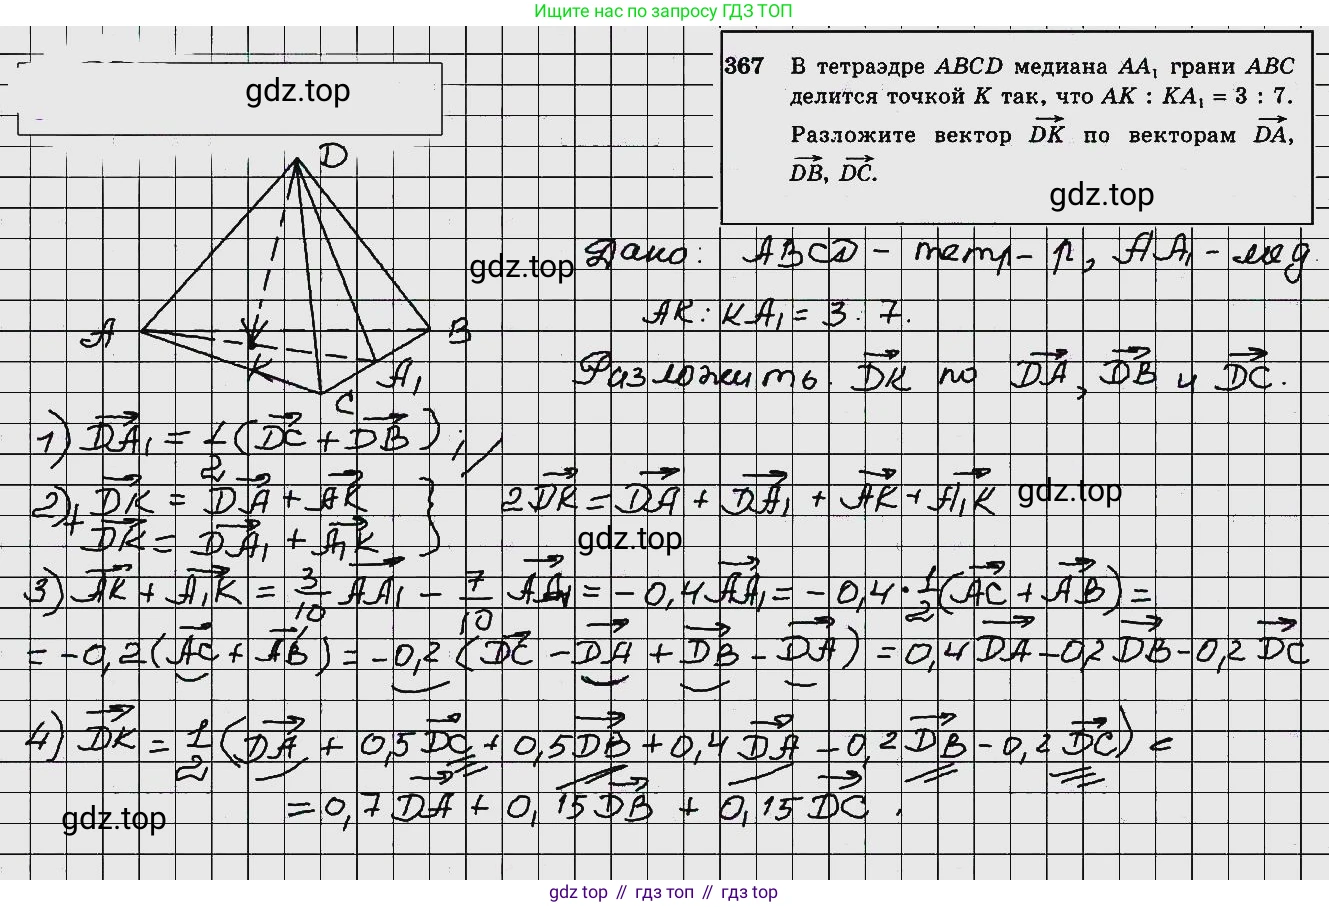 Ищите нас по запросу ГДЗ ТОП
gdz.top
367 В тетраэдре ABCD медиана AA₁ грани ABC
делится точкой K так, что AK : KA₁ = 3 : 7.
Разложите вектор DK⃗ по векторам DA⃗,
DB⃗, DC⃗.
gdz.top
D
A
B
K
A₁
C
gdz.top
Дано: ABCD - тетр-р, AA₁ - мед.
AK : KA₁ = 3 : 7.
Разложить. DK⃗ по DA⃗, DB⃗ и DC⃗.
1) DA₁⃗ = 1/2 (DC⃗ + DB⃗);
2) DK⃗ = DA⃗ + AK⃗
+ DK⃗ = DA₁⃗ + A₁K⃗
} 2DK⃗ = DA⃗ + DA₁⃗ + AK⃗ + A₁K⃗
gdz.top
gdz.top
3) AK⃗ + A₁K⃗ = 3/10 AA₁⃗ - 7/10 AA₁⃗ = -0,4AA₁⃗ = -0,4 · 1/2 (AC⃗ + AB⃗) =
= -0,2(AC⃗ + AB⃗) = -0,2 (DC⃗ - DA⃗ + DB⃗ - DA⃗) = 0,4DA⃗ - 0,2DB⃗ - 0,2DC⃗
4) DK⃗ = 1/2 (DA⃗ + 0,5DC⃗ + 0,5DB⃗ + 0,4DA⃗ - 0,2DB⃗ - 0,2DC⃗) =
= 0,7DA⃗ + 0,15DB⃗ + 0,15DC⃗.
gdz.top
gdz top // гдз топ // gdz top